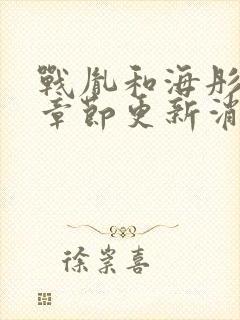 戰胤和海彤
章節更新消
徐崇喜